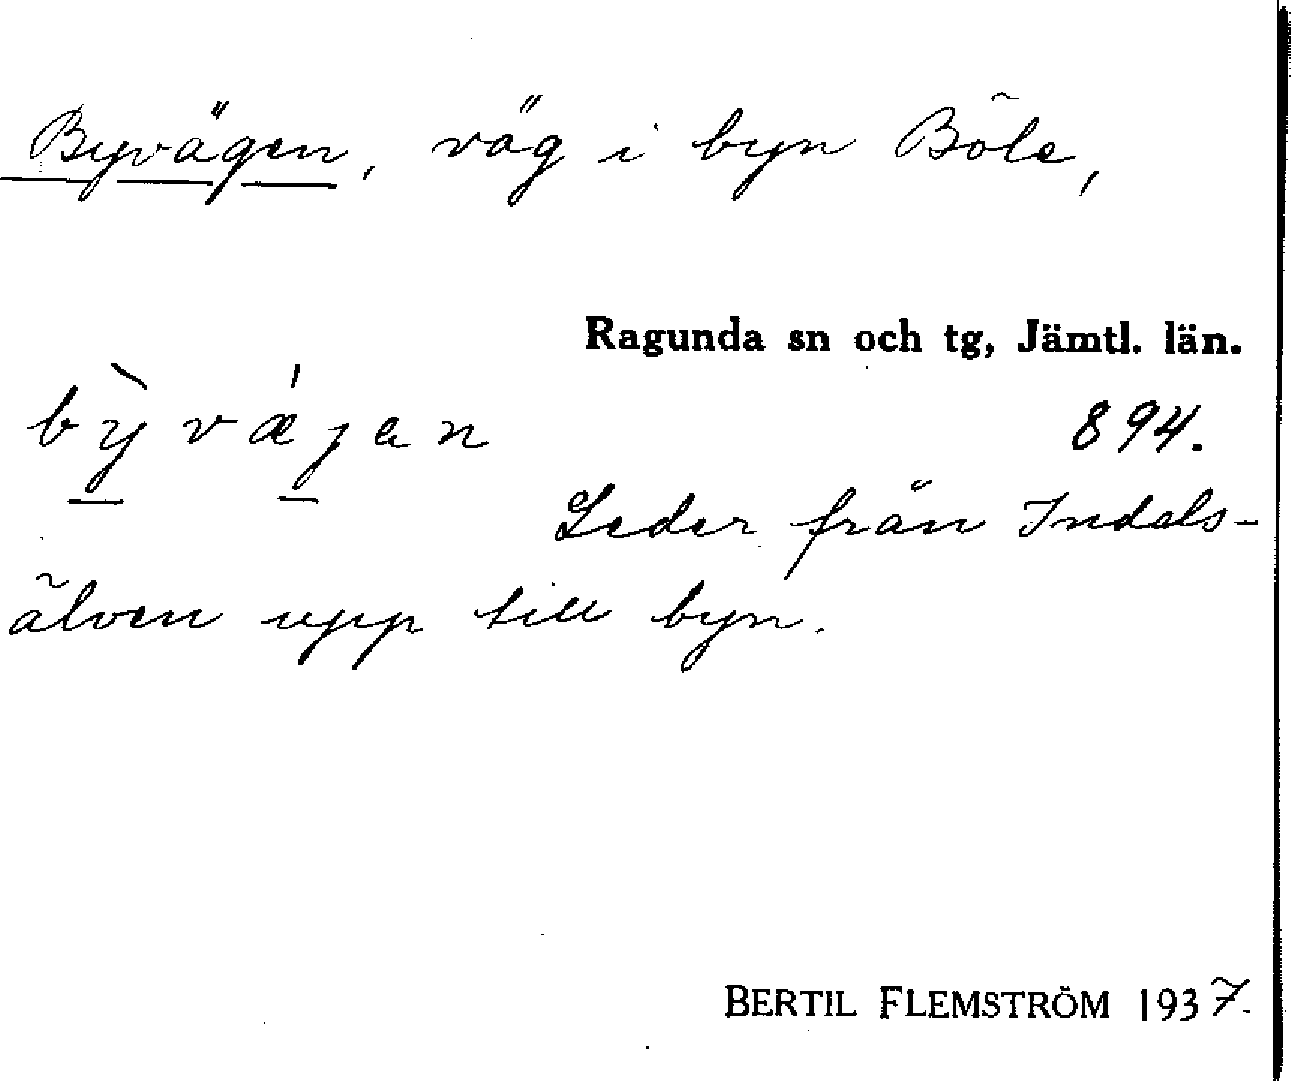 Byvägen, väg i byn Böle,
Ragunda sn och tg, Jämtl. län.
bỳvǽjen 894.
Leder från Indals-
älven upp till byn.
BERTIL FLEMSTRÖM 1937.